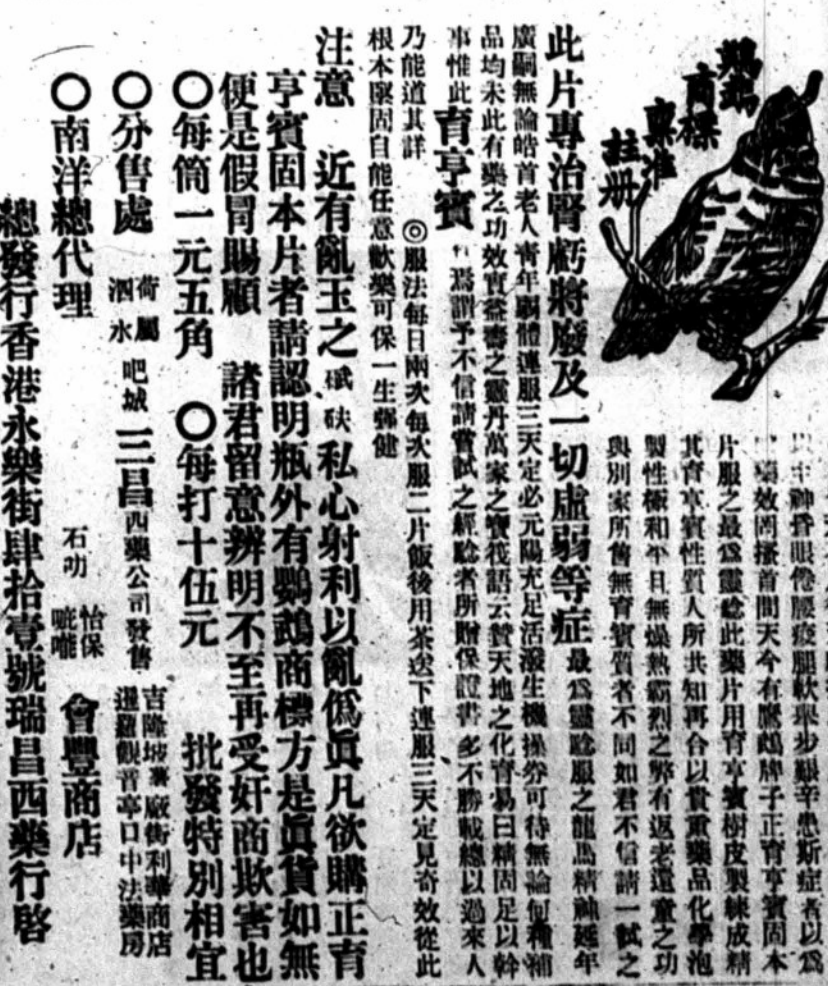 鸚鵡
商標
稟准
註册
神昏眼倦腰痠腿軟舉步艱辛患斯症者以爲
藥效罔搔首問天今有鸚鵡牌子正育亨賓固本
片服之最爲靈騐此藥片用育亨賓樹皮製練成精
其育亨賓性質人所共知再合以貴重藥品化學泡
製性極和平且無燥熱霸烈之弊有返老還童之功
與別家所售無育賓質者不同如君不信請一試之
此片專治腎虧將廢及一切虛弱等症 最爲靈騐服之龍馬精神延年
廣嗣無論皓首老人青年弱體連服三天定必元陽充足活潑生機操券可待無論何種補
品均未此有藥之功效實益壽之靈丹萬家之寶筏語云贊天地之化育易曰精固足以幹
事惟此育亨賓 爲謂予不信請嘗試之經騐者所贈保證書多不勝載總以過來人
乃能道其詳 ◎服法每日兩次每次服二片飯後用茶送下連服三天定見奇效從此
根本堅固自能任意歡樂可保一生強健
注意 近有亂玉之碔砆私心射利以亂僞眞凡欲購正育
亨賓固本片者請認明瓶外有鸚鵡商標方是眞貨如無
便是假冒賜顧 諸君留意辨明不至再受奸商欺害也
〇每筒一元五角 〇每打十伍元 批發特別相宜
〇分售處 荷屬 泗水 吧城 三昌西藥公司發售 吉隆坡 廠街利華商店 暹羅觀音亭口中法藥房
〇南洋總代理 石叻 怡保 嚨 會豐商店
總發行香港永樂街肆拾壹號瑞昌西藥行啓